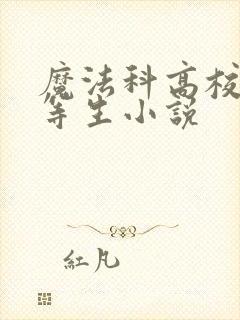 魔法科高校
等生小說
紅凡